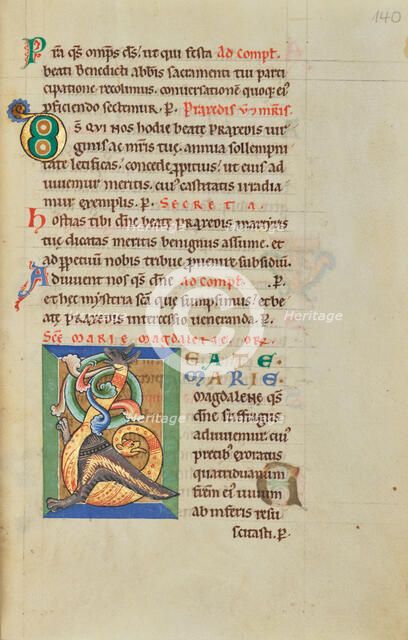 140
Pra qs omps ds. ut qui festa Ad compt.
beati Benedicti abbis sacramenti tui parti
cipatione recolimus. conversationem quoq; ei'
pficiendo sectemur. P. Praxedis v̄ m̄ris.
DS QUI NOS hodie beatę PRAXEDIS vir
ginis ac mr̄is tuę. annua sollempni
tate lętificas. concede ppitius. ut eius ad
iuvemur meritis. cui' castitatis irradia
mur exemplis. P. SECRETA.
hostias tibi dn̄e beatę PRAXEDIS martyris
tuę dicatas meritis benignus assume. et
ad ppetuum nobis tribue pvenire subsidiū.
Adiuvent nos qs dn̄e Ad compt. P.
et hęc mysteria scā que sumpsimus. et be
atę PRAXEDIS intercessio veneranda. P.
SCĒ MARIE MAGDALENĘ. OR.
BEATE
MARIE
MAGDALENĘ qs
dn̄e suffragiis
adiuvemur. cui'
precib' exoratus
quatriduanum
frēm ei' vivum
ab inferis resu
scitasti. P.
Heritage
Images
Heritage
Images
Heritage
Images